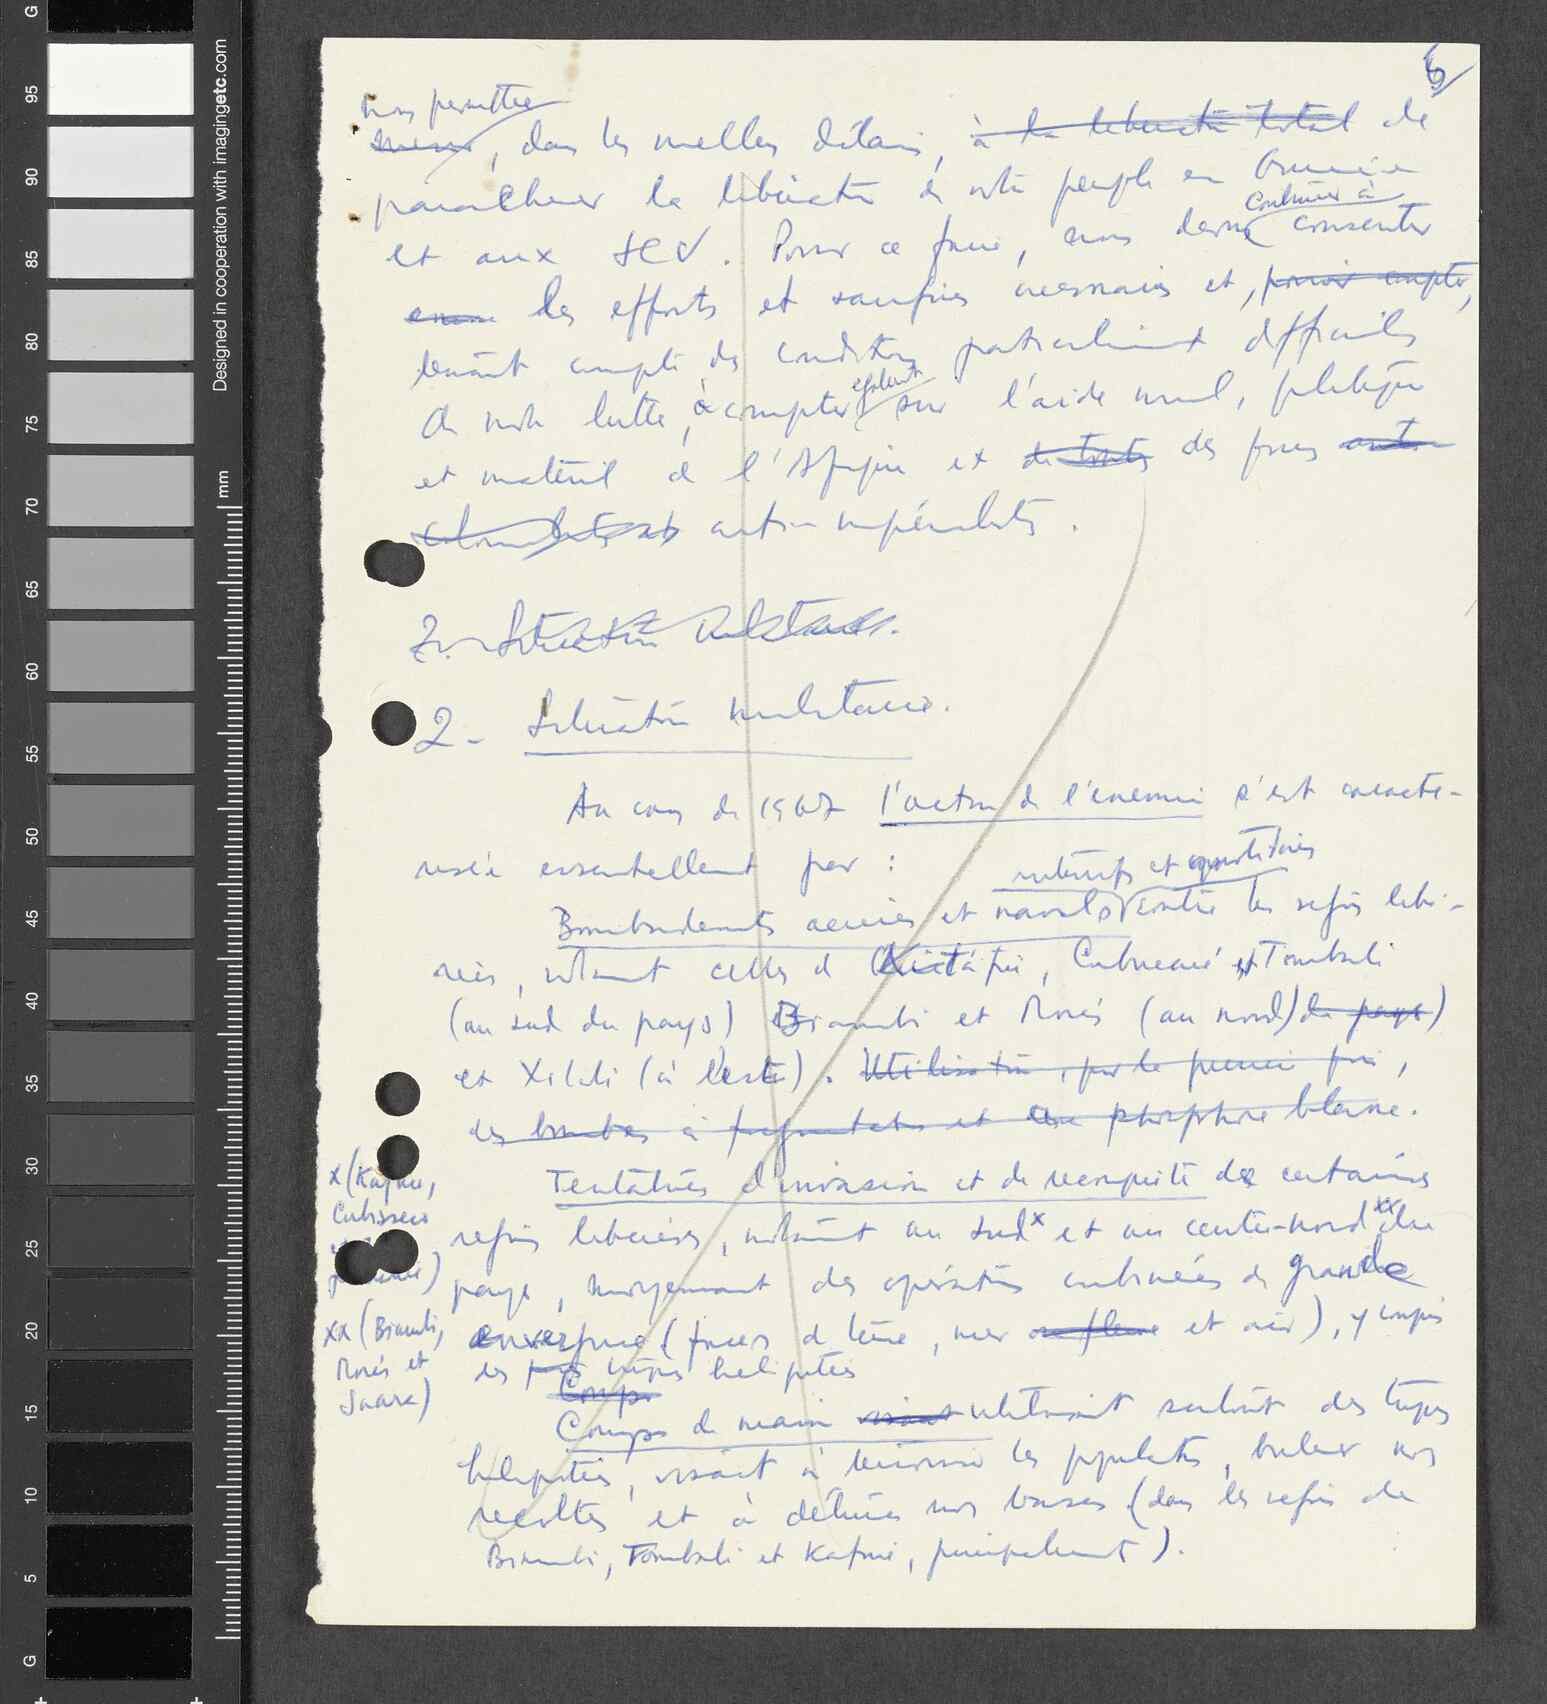 6
nous permettre
dans les meilleurs délais, à la libération totale de
parachever la libération de notre peuple en Guinée
et aux ICV. Pour ce faire, nous devons continuer à consentir
encore les efforts et sacrifices nécessaires et,
tenant compte des conditions particulièrement difficiles
de notre lutte, à compter également sur l'aide morale, politique
et matériel de l'Afrique et de toutes des forces anti-
anti-impérialistes.
2. - Situation militaire.
2 - Situation militaire.
Au cours de 1967 l'action de l'ennemi s'est caracté-
risée essentiellement par :
intensifs et
Bombardements aériens et navals contre les régions libé-
rées, notamment celles de Quitáfine, Cubucaré et Tombali
(au sud du pays) Biambi et Morés (au nord) du pays)
et Xitoli (à l'est). Utilisation, pour la première fois,
des bombes à fragmentation et au phosphore blanc.
Tentatives d'invasion et de reconquête de certaines
régions libérées, notamment au sud x et au centre-nord xx du
pays, moyennant des opérations combinées de grande
envergure (forces de terre, mer et air), y compris
des troupes héliportées
Coups
Coups de main utilisant surtout des troupes
héliportées, visant à terroriser les populations, brûler nos
récoltes et à détruire nos bases (dans les régions de
Biambi, Tombali et Kafine, principalement).
x (Kafine,
Cubisseco
xx (Biambi,
Morés et
Saara)
Designed in cooperation with imagingetc.com
mm
G
95
90
85
80
75
70
65
60
55
50
45
40
35
30
25
20
15
10
5
G